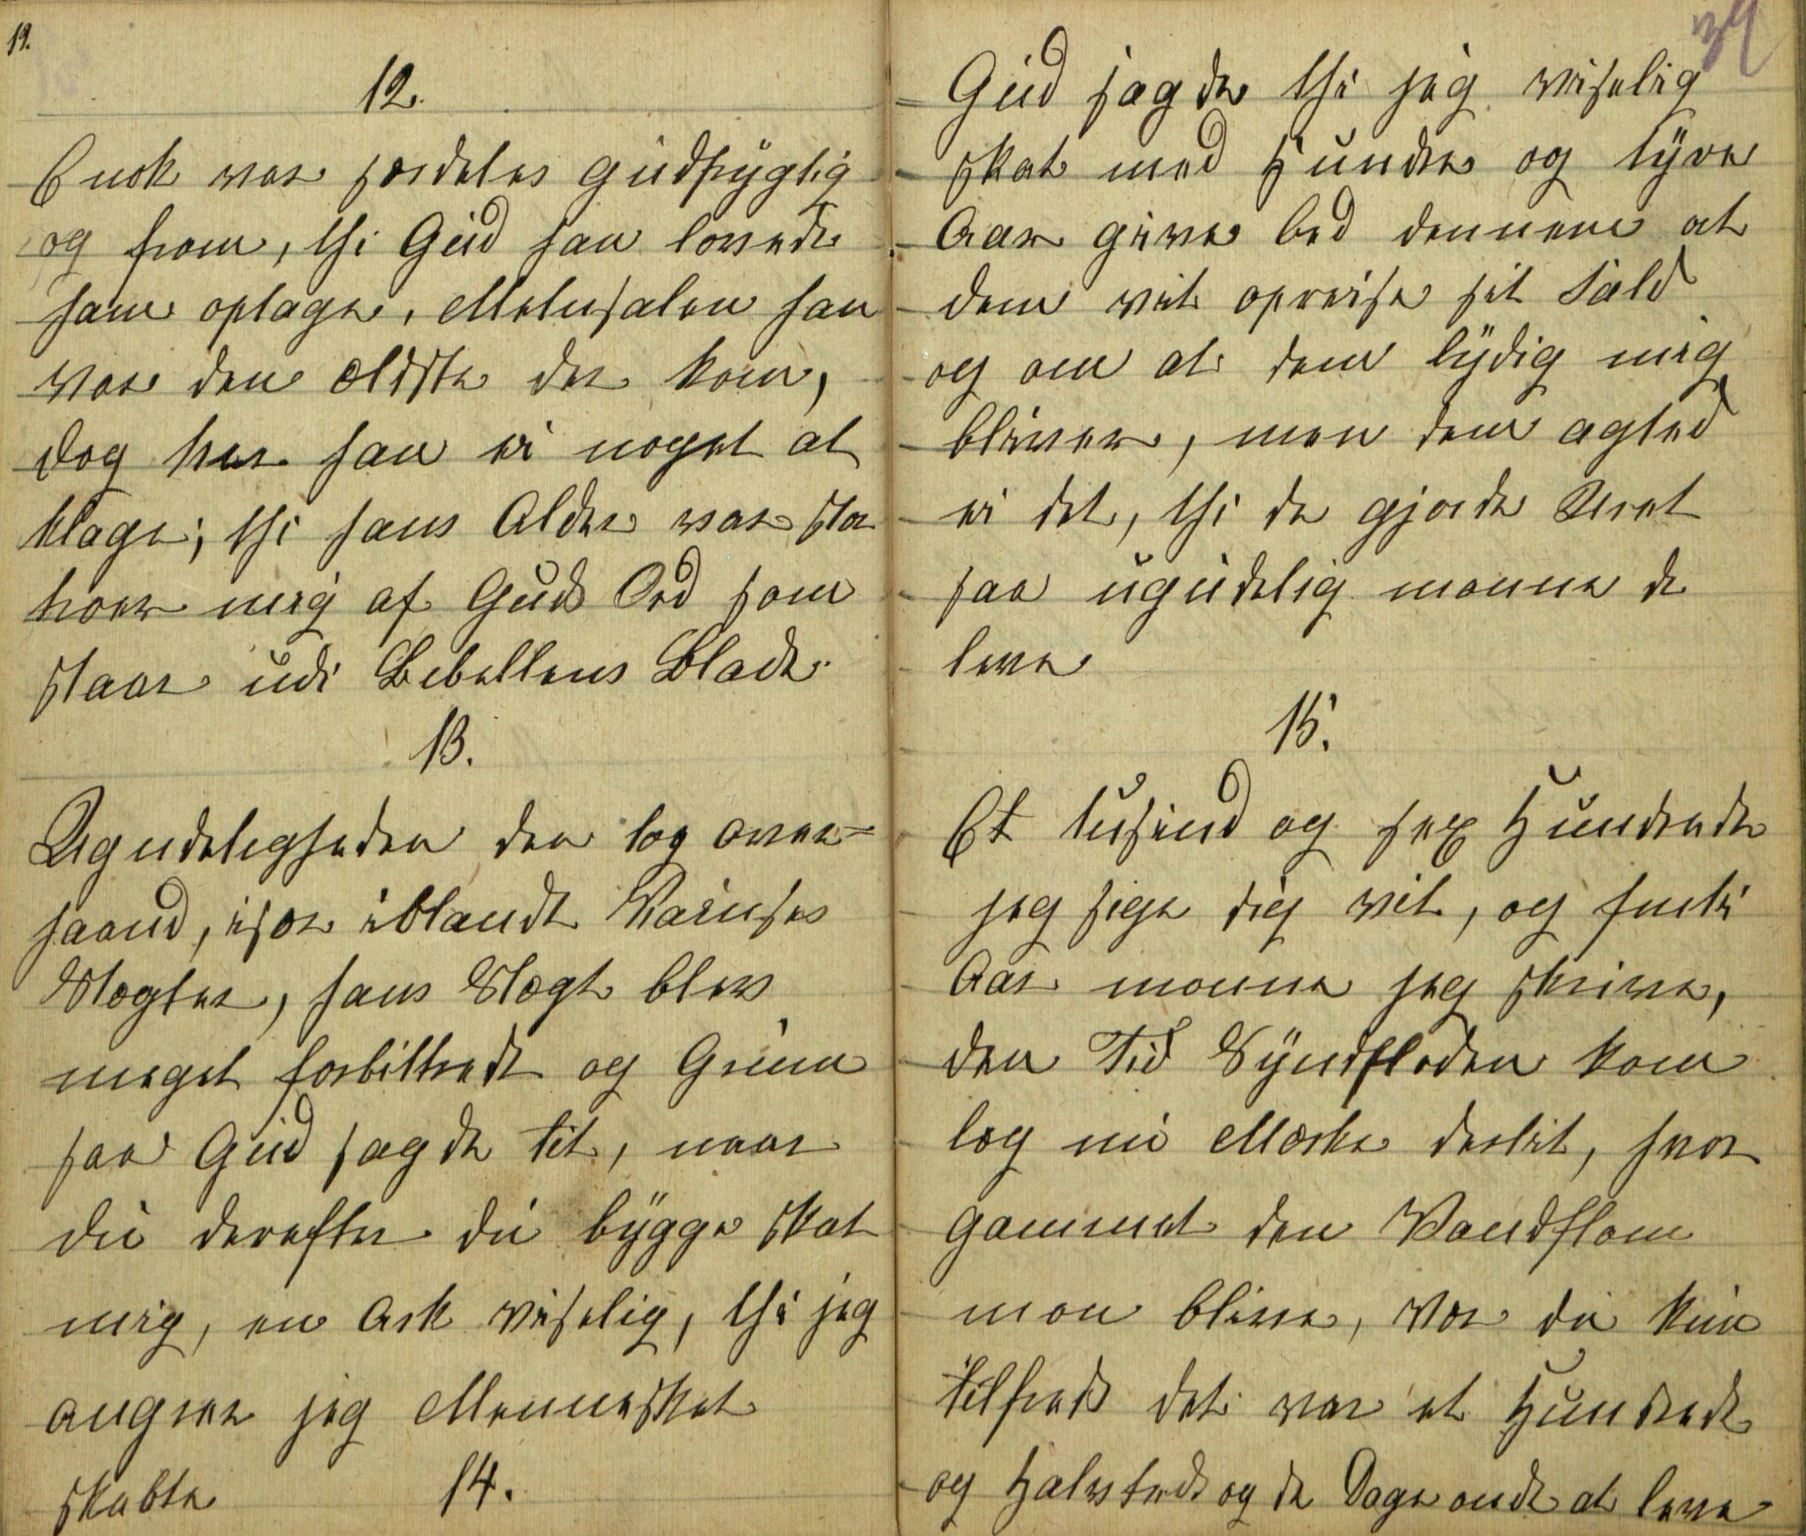 19.
12.
Enok var særdeles gudfrygtig
og from, thi Gud han lovede
ham optage, Metusalem han
var den ældste der kom,
dog har han ei noget at
klage; thi hans Alder var stor
hver mig af Guds Ord som
staar udi Bebellens Blade.
13.
Ugudeligheden den tog over-
haand, især iblandt Kainses
Slægter, hans Slægt blev
meget forbittredt og Grum
saa Gud sagde til, naar
du derefter du bygge skal
mig, en Ark viselig, thi jeg
angrer jeg Mennesket
skabte
14.
34
Gud sagde thi jeg viselig
skal med Hundre og tyve
Aar give bed dennem at
dem vil opreise sit Fald
og om at dem lydig mig
bliver, men dem agted
ei det, thi de gjorde Uret
saa ugudelig monne de
leve
15.
Et tusind og sex Hundrede
jeg sige dig vil, og femti
Aar monne jeg skrive,
den Tid Syndfloden kom
læg nu Mærke dertil, hvor
gammel den Vandflom
mon blive, Vær du kun
tilfreds det var et Hundrede
og Halvtreds og de Dage onde at leve